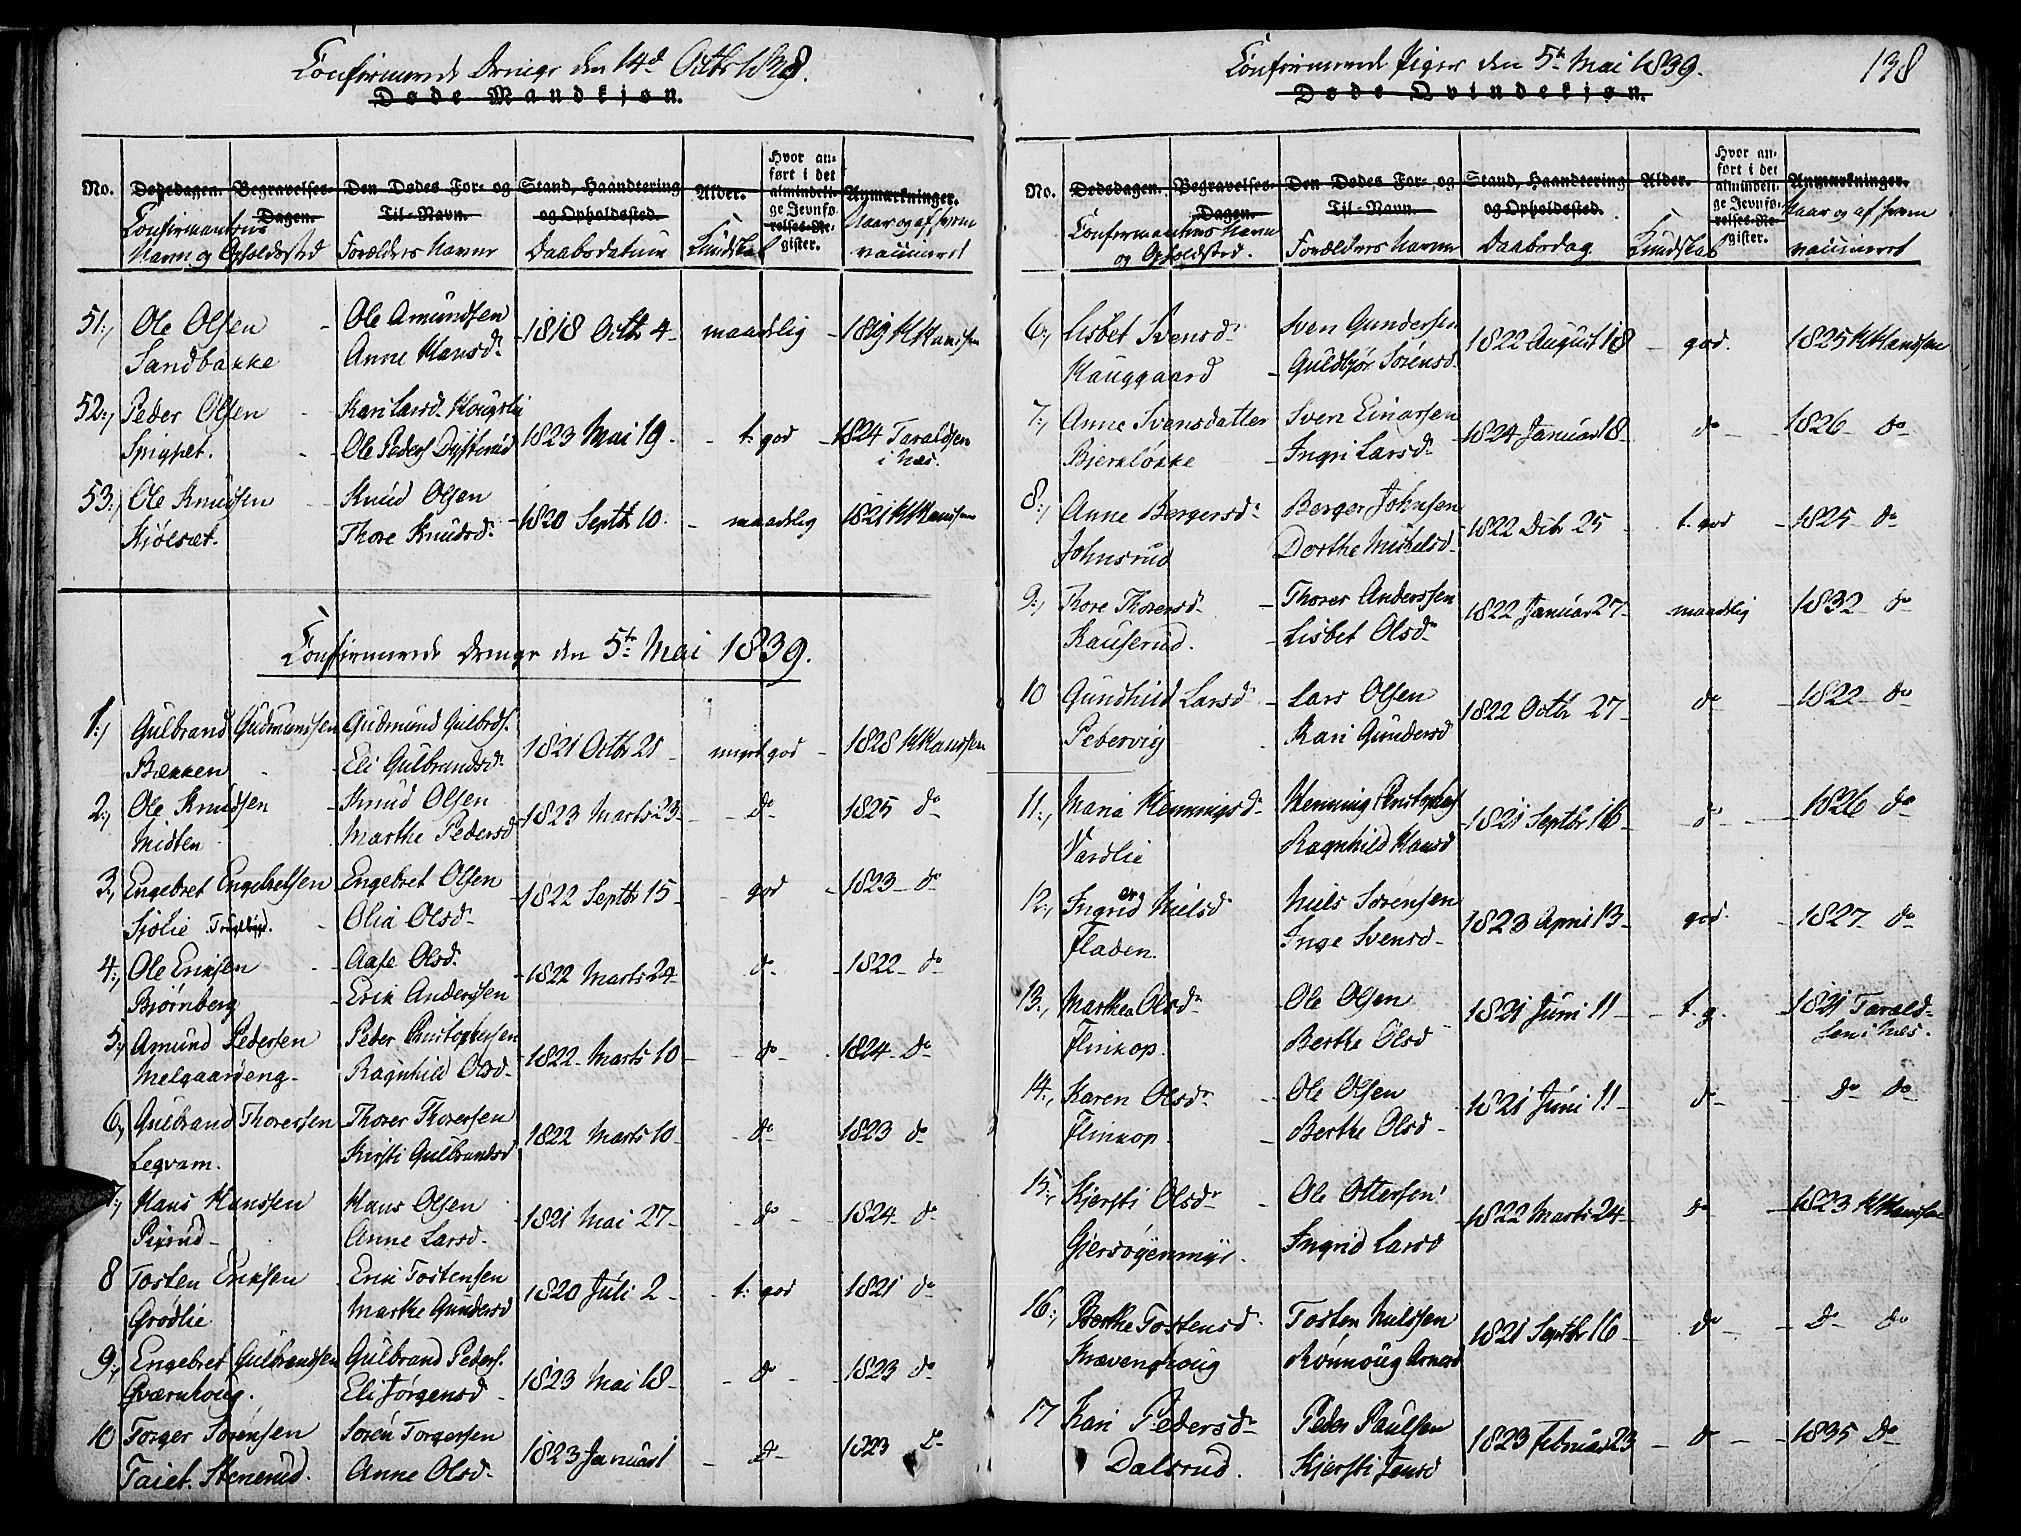 Confirmerede Drenge den 14d Octbr 1838.
Døde Mandkjøn.
No. Dødsdagen. Begravelses-Dagen. Den Dødes For- og Til-Navn. Stand, Haandtering og Opholdssted. Alder. Hvor anført i det almindelige Jevnførelses-Register. Anmærkninger.
Confirmantens Navn og Opholdssted Forældres Navne Daabsdatum Kundskab Naar og af hvem vaccineret
51:, Ole Olsen Ole Amundsen 1818 Octbr 4 maadlig 1819 H Hansen
Sandbakke Anne Hansd.
52:, Peder Olsen Kari Larsd. 1823 Mai 19. t. god 1824 Taraldsen
Ole Peders i Næs.
53:, Ole Knudsen Knud Olsen 1820 Septbr 10. maadlig 1821 H Hansen
Kjølset. Thore Knudsd.
Confirmerede Drenge den 5te Mai 1839.
1:, Gulbrand Gudmundsen Gudmund Gulbrds. 1821 Octbr 21 meget god 1828 H Hansen
Bækken Eli Gulbrandsd.
2:, Ole Knudsen Knud Olsen 1823 Marts 23 do 1825 do
Midten Marthe Pedersd
3:, Engebret Engebretsen Engebret Olsen 1822 Septbr 15 god 1823 do
Sjølie Olia Olsd.
4:, Ole Eriksen Aase Olsd. 1822 Marts 24 do 1822 do
Bjørnberg Erik Anderssen
5:, Amund Pedersen Peder Christophersen 1822 Marts 10 do 1824 do
Melgaardeng Ragnhild Olsd.
6, Gulbrand Thoressen Thorer Thoressen 1822 Marts 10 do 1823 do
Legvam. Kirsti Gulbrandsd
7:, Hans Hanssen Hans Olsen 1821 Mai 27 do 1824 do
Pixrud Anne Larsd.
8 Tosten Eriksen Erik Tostensen 1820 Juli 2 t: god 1821 do
Grødlie Marthe Gundersd
9:, Engebret Gulbrandsen Gulbrand Peders. 1823 Mai 18 do 1823 do
Qværnhoug. Eli Jørgensd
10 Torger Sørensen Søren Torgersen 1823 Januar 1 do 1823 do
Taiet. Stenerud. Anne Olsd.
Confirmerede Piger den 5te Mai 1839. 138
Døde Qvindekjøn.
No. Dødsdagen. Begravelses-Dagen. Den Dødes For- og Til-Navn. Stand, Haandtering og Opholdssted. Alder. Hvor anført i det almindelige Jevnførelses-Register. Anmærkninger.
Confirmantens Navn og Opholdsted. Forældres Navne Daabsdag Kundskab Naar og af hvem vaccineret
6:, Lisbet Svensdr Sven Gundersen 1822 August 18 god. 1825 H Hansen
Hauggaard Guldbjør Sørensd.
7:, Anne Svensdatter Sven Einarsen 1824 Januar 18 do 1826 do
Bjerkløkke Ingri Larsdr
8:, Anne Bergersdr Berger Johnsen 1822 Dcbr 25 t. god 1825 do
Johnsrud Dorthe Mickelsd.
9:, Thore Thoresd. Thorer Anderssen 1822 Januar 27 maadlig 1832 do
Kauserud. Lisbet Olsdr
10 Gundhild Larsdr Lars Olsen 1822 Octbr 27 do 1822 do
Pebervig Kari Gundersd
11:, Maria Hemmingsdr Hemming Christophers 1821 Septbr 16 do 1826 do
Vardlie Ragnhild Hansd
12:, Ingrid Nielsd Niels Sørensen 1823 April 13 god. 1827 do
Fladen. Inge Svensd.
13:, Marthea Olsdr Ole Olsen 1821 Juni 11 t. g. 1821 Tarald-
Flinkop. Berthe Olsd sen i Næs.
14:, Karen Olsdr Ole Olsen 1821 Juni 11 do do do
Flinkop. Berthe Olsd
15:, Kjersti Olsdr Ole Ottersen 1822 Marts 24 do 1823 H Hansen
Gjersøyenmyr. Ingrid Larsd
16:, Berthe Tostensd. Tosten Nielssen 1821 Septbr 16 do do do
Knævenghoug Rønnoug Arnesd
17 Kari Pedersdr Peder Paulsen 1823 Februar 23 do 1835 do
Dalsrud. Kjersti Jensd